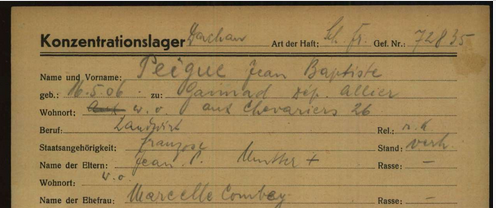 Konzentrationslager Dachau Art der Haft: Sch. Fr. Gef. Nr.: 72835
Name und Vorname: Peigue Jean Baptiste
geb.: 16.5.06 zu: Gannad Dep. Allier
Wohnort: w.o. aux Chevariers 26
Beruf: Landwirt Rel.: r.k
Staatsangehörigkeit: Franzose Stand: verh
Name der Eltern: Jean P. Mutter + Rasse: —
Wohnort: w.o.
Name der Ehefrau: Marcelle Combey Rasse: —